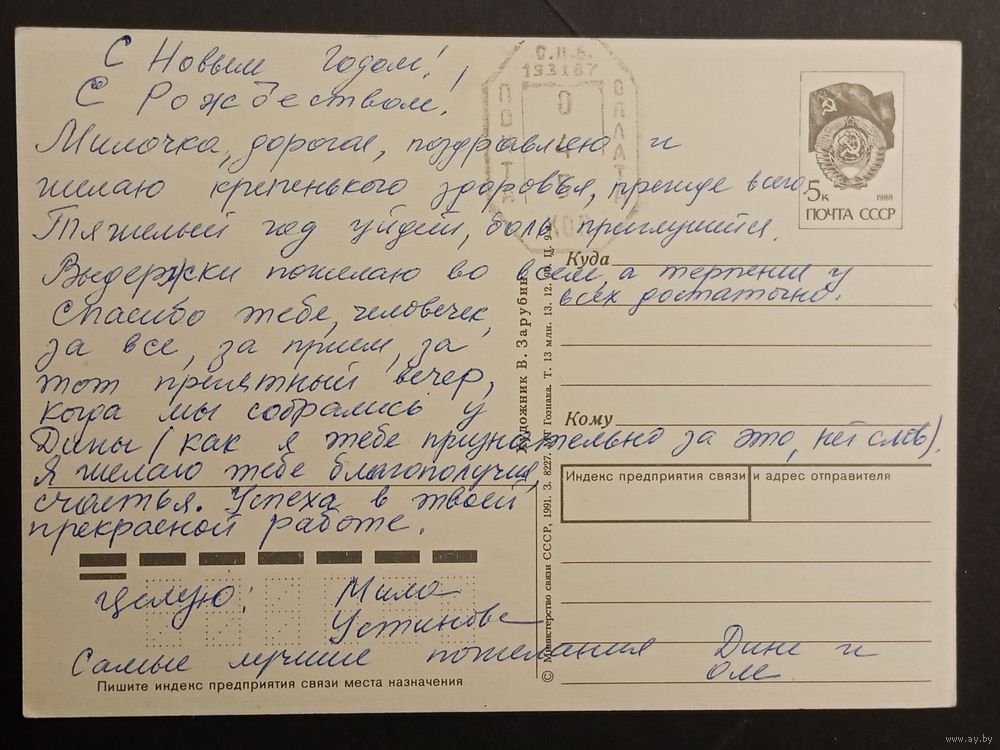 С Новым годом!,
С Рождеством!
Милочка, дорогая, поздравляю и
желаю крепенького здоровья, прежде всего
Тяжелый год уйдёй, боль приглушийся.
Выдержки пожелаю во всем, а терпения у
всех достаточно.
Спасибо тебе, человечек,
за все, за прием, за
тот приятный вечер,
когда мы собрались у
Дины (как я тебе признательно за это, нет слов).
Я желаю тебе благополучия,
счастья. Успеха в твоей
прекрасной работе.
Целую!
Мила
Устинова
Самые лучшие пожелания Дине и
Оле
Пишите индекс предприятия связи места назначения
С.П.Б.
193167
ПОЧТА
ОПЛАТА
КОП
5к
1988
ПОЧТА СССР
Куда
Кому
Индекс предприятия связи и адрес отправителя
Художник В. Зарубин
© Министерство связи СССР, 1991. З. 8227. Гознака. Т. 13 млн. 13. 12. Ц.
www.ay.by